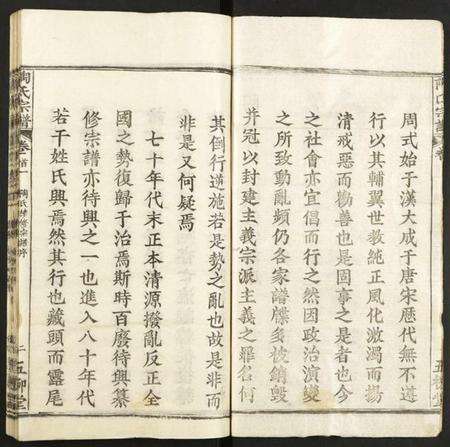 周式始于漢大成于唐宋歷代無不遵
行以其輔翼世教純正風化激濁而揚
清戒惡而勸善也是固事之是者也今
之社會亦宜倡而行之然因政治演變
之所致動亂頻仍各家譜牒多被銷毀
并冠以封建主義宗派主義之罪名何
其倒行逆施若是勢之亂也故是非而
非是又何疑焉
七十年代末正本清源撥亂反正全
國之勢復歸于治焉斯時百廢待興纂
修宗譜亦待興之一也進入八十年代
若干姓氏興焉然其行也藏頭而露尾
陶氏宗譜
卷首一
五柳堂